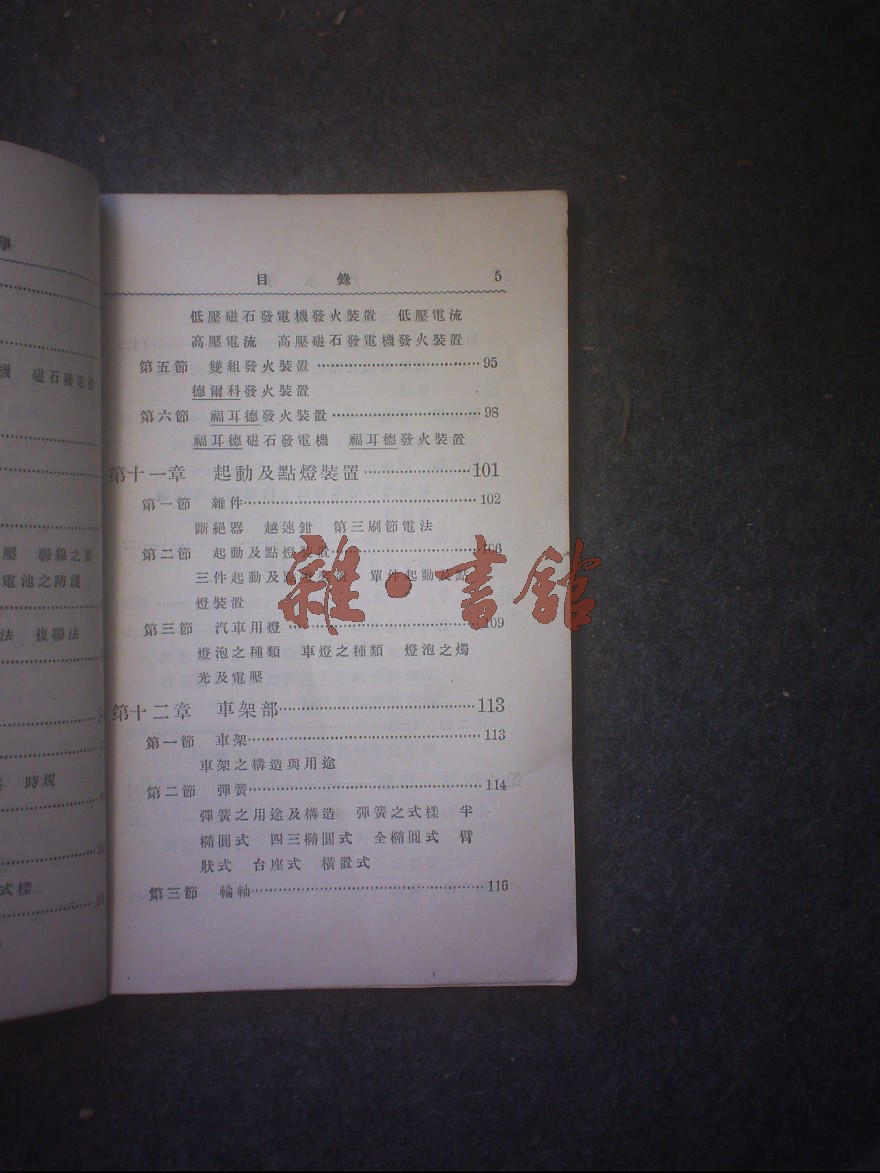 學
機　磁石發電機
壓　聯線之要
電池之防護
法　複聯法
時規
式樣
91
目　錄　5
低壓磁石發電機發火裝置　低壓電流
高壓電流　高壓磁石發電機發火裝置
第五節　雙組發火裝置⋯⋯95
德爾科發火裝置
第六節　福耳德發火裝置⋯⋯98
福耳德磁石發電機　福耳德發火裝置
第十一章　起動及點燈裝置⋯⋯101
第一節　雜件⋯⋯102
斷絕器　越速鉗　第三刷節電法
第二節　起動及點燈裝置⋯⋯106
三件起動及點燈裝置　單件起動及點
燈裝置
第三節　汽車用燈⋯⋯109
燈泡之種類　車燈之種類　燈泡之燭
光及電壓
第十二章　車架部⋯⋯113
第一節　車架⋯⋯113
車架之構造與用途
第二節　彈簧⋯⋯114
彈簧之用途及構造　彈簧之式樣　半
橢圓式　四三橢圓式　全橢圓式　臂
狀式　台座式　橫置式
第三節　輪軸⋯⋯116
雜·書館